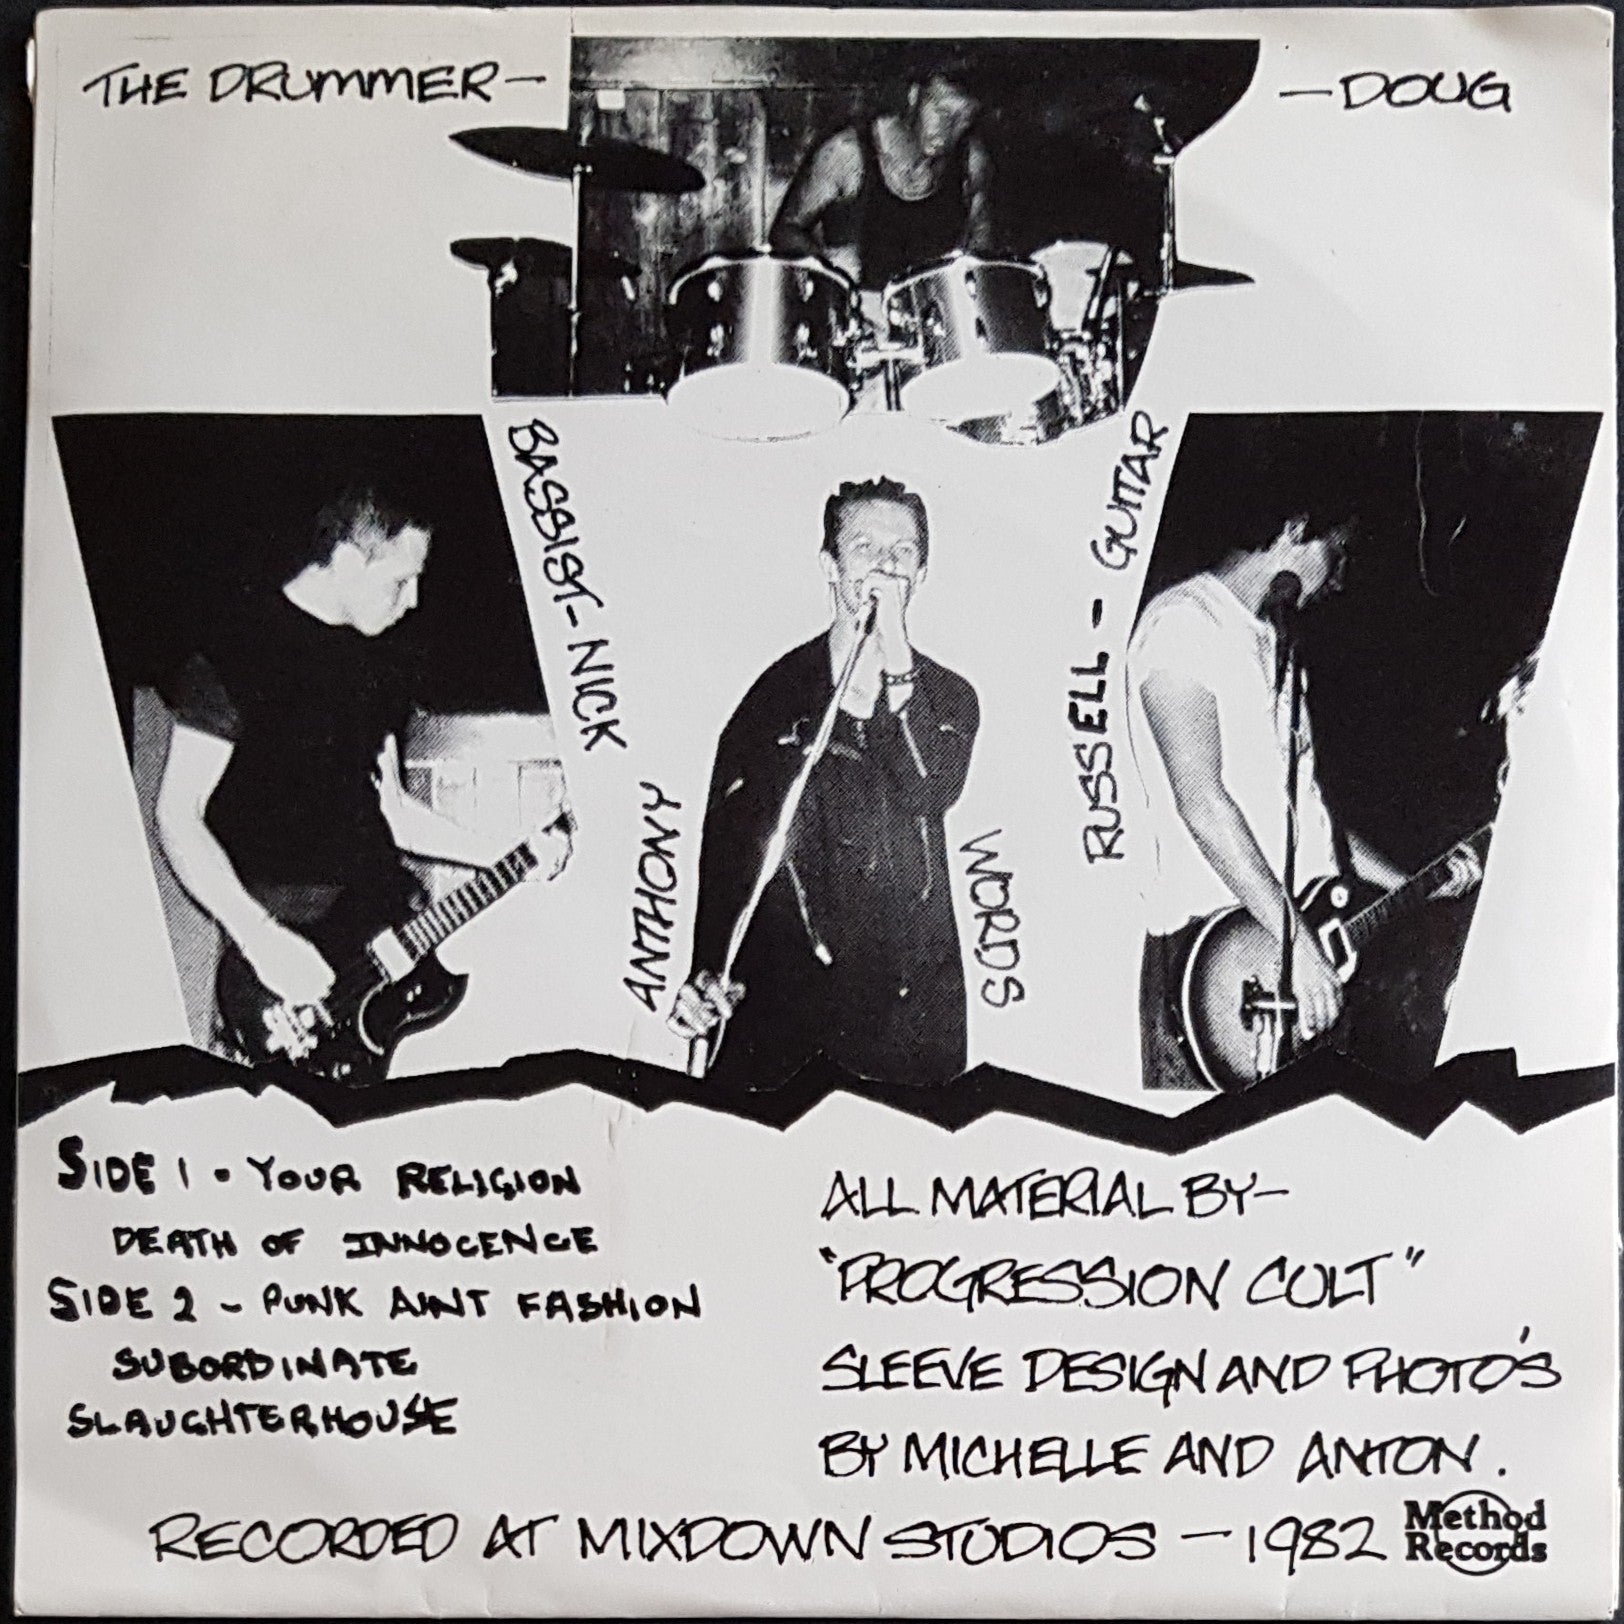 THE DRUMMER—
—DOUG
BASSIST-NICK
ANTHONY
WORDS
RUSSELL - GUITAR
SIDE 1 • YOUR RELIGION
DEATH OF INNOCENCE
SIDE 2 - PUNK AINT FASHION
SUBORDINATE
SLAUGHTERHOUSE
ALL MATERIAL BY—
"PROGRESSION CULT"
SLEEVE DESIGN AND PHOTO'S
BY MICHELLE AND ANTON.
RECORDED AT MIXDOWN STUDIOS — 1982
Method
Records